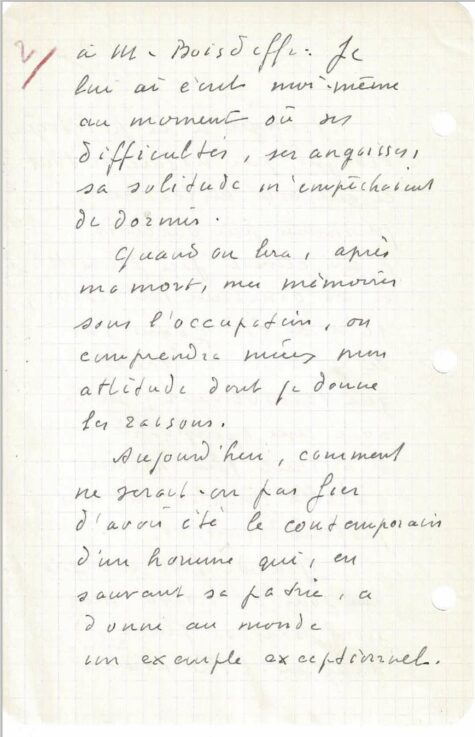 2/
à M. Boisdeffre. Je
lui ai écrit moi-même
au moment où ses
difficultés, ses angoisses,
sa solitude m'empêchaient
de dormir.
Quand on lira, après
ma mort, mes mémoires
sous l'occupation, on
comprendra mieux mon
attitude dont je donne
les raisons.
Aujourd'hui, comment
ne serait-on pas fier
d'avoir été le contemporain
d'un homme qui, en
sauvant sa patrie, a
donné au monde
un exemple exceptionnel.